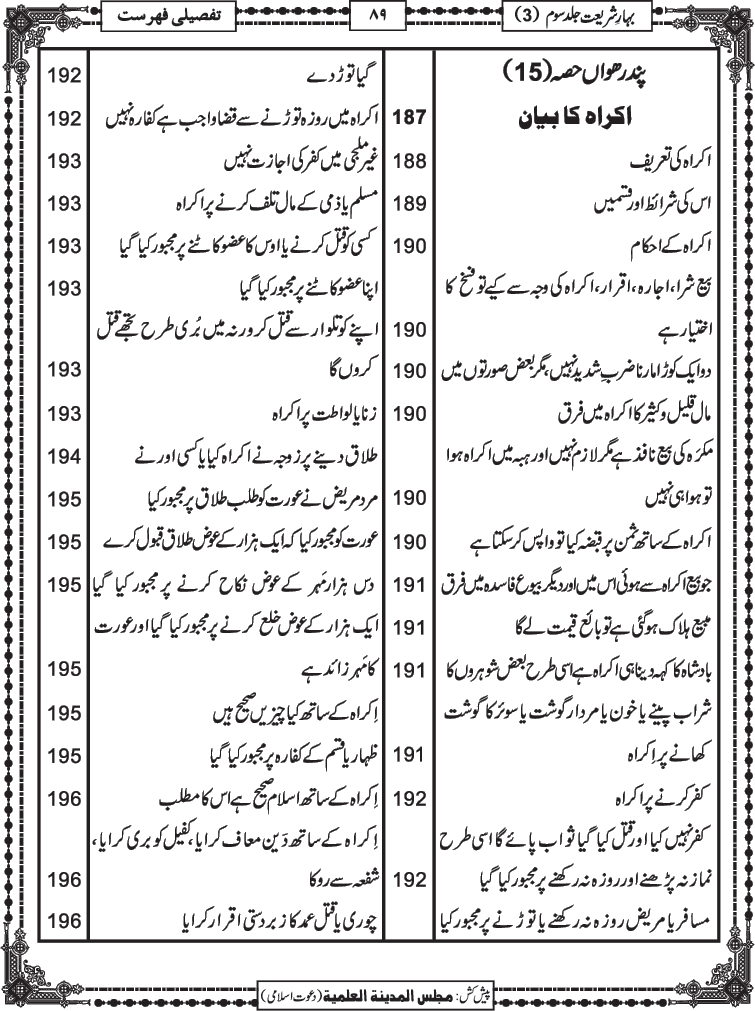 بہارِ شریعت جلد سوم (3)
۸۹
تفصیلی فہرست
پندرھواں حصہ (15)
اکراہ کا بیان 187
اکراہ کی تعریف 188
اس کی شرائط اور قسمیں 189
اکراہ کے احکام 190
بیع شرا، اجارہ، اقرار، اکراہ کی وجہ سے کیے تو فسخ کا
اختیار ہے 190
دو ایک کوڑا مارنا ضربِ شدید نہیں، مگر بعض صورتوں میں 190
مال قلیل و کثیر کا اکراہ میں فرق 190
مکرَہ کی بیع نافذ ہے مگر لازم نہیں اور ہبہ میں اکراہ ہوا
تو ہوا ہی نہیں 190
اکراہ کے ساتھ ثمن پر قبضہ کیا تو واپس کر سکتا ہے 190
جو بیع اکراہ سے ہوئی اس میں اور دیگر بیوع فاسدہ میں فرق 191
مبیع ہلاک ہوگئی ہے تو بائع قیمت لے گا 191
بادشاہ کا کہہ دینا ہی اکراہ ہے اسی طرح بعض شوہروں کا 191
شراب پینے یا خون یا مردار گوشت یا سوئر کا گوشت
کھانے پر اِکراہ 191
کفر کرنے پر اکراہ 192
کفر نہیں کیا اور قتل کیا گیا ثواب پائے گا اسی طرح
نماز نہ پڑھنے اور روزہ نہ رکھنے پر مجبور کیا گیا 192
مسافر یا مریض روزہ نہ رکھنے یا توڑنے پر مجبور کیا
گیا توڑ دے 192
اکراہ میں روزہ توڑنے سے قضا واجب ہے کفارہ نہیں 192
غیر ملجی میں کفر کی اجازت نہیں 193
مسلم یا ذمی کے مال تلف کرنے پر اکراہ 193
کسی کو قتل کرنے یا اوس کا عضو کاٹنے پر مجبور کیا گیا 193
اپنا عضو کاٹنے پر مجبور کیا گیا 193
اپنے کو تلوار سے قتل کر ورنہ میں بُری طرح تجھے قتل
کروں گا 193
زنا یا لواطت پر اکراہ 193
طلاق دینے پر زوجہ نے اکراہ کیا یا کسی اور نے 194
مرد مریض نے عورت کو طلب طلاق پر مجبور کیا 195
عورت کو مجبور کیا کہ ایک ہزار کے عوض طلاق قبول کرے 195
دس ہزار مَہر کے عوض نکاح کرنے پر مجبور کیا گیا 195
ایک ہزار کے عوض خلع کرنے پر مجبور کیا گیا اور عورت
کا مَہر زائد ہے 195
اِکراہ کے ساتھ کیا چیزیں صحیح ہیں 195
ظہار یا قسم کے کفارہ پر مجبور کیا گیا 195
اِکراہ کے ساتھ اسلام صحیح ہے اس کا مطلب 196
اِکراہ کے ساتھ دَین معاف کرایا، کفیل کو بری کرایا،
شفعہ سے روکا 196
چوری یا قتل عمد کا زبردستی اقرار کرایا 196
پیش کش: مجلس المدینۃ العلمیۃ (دعوت اسلامی)